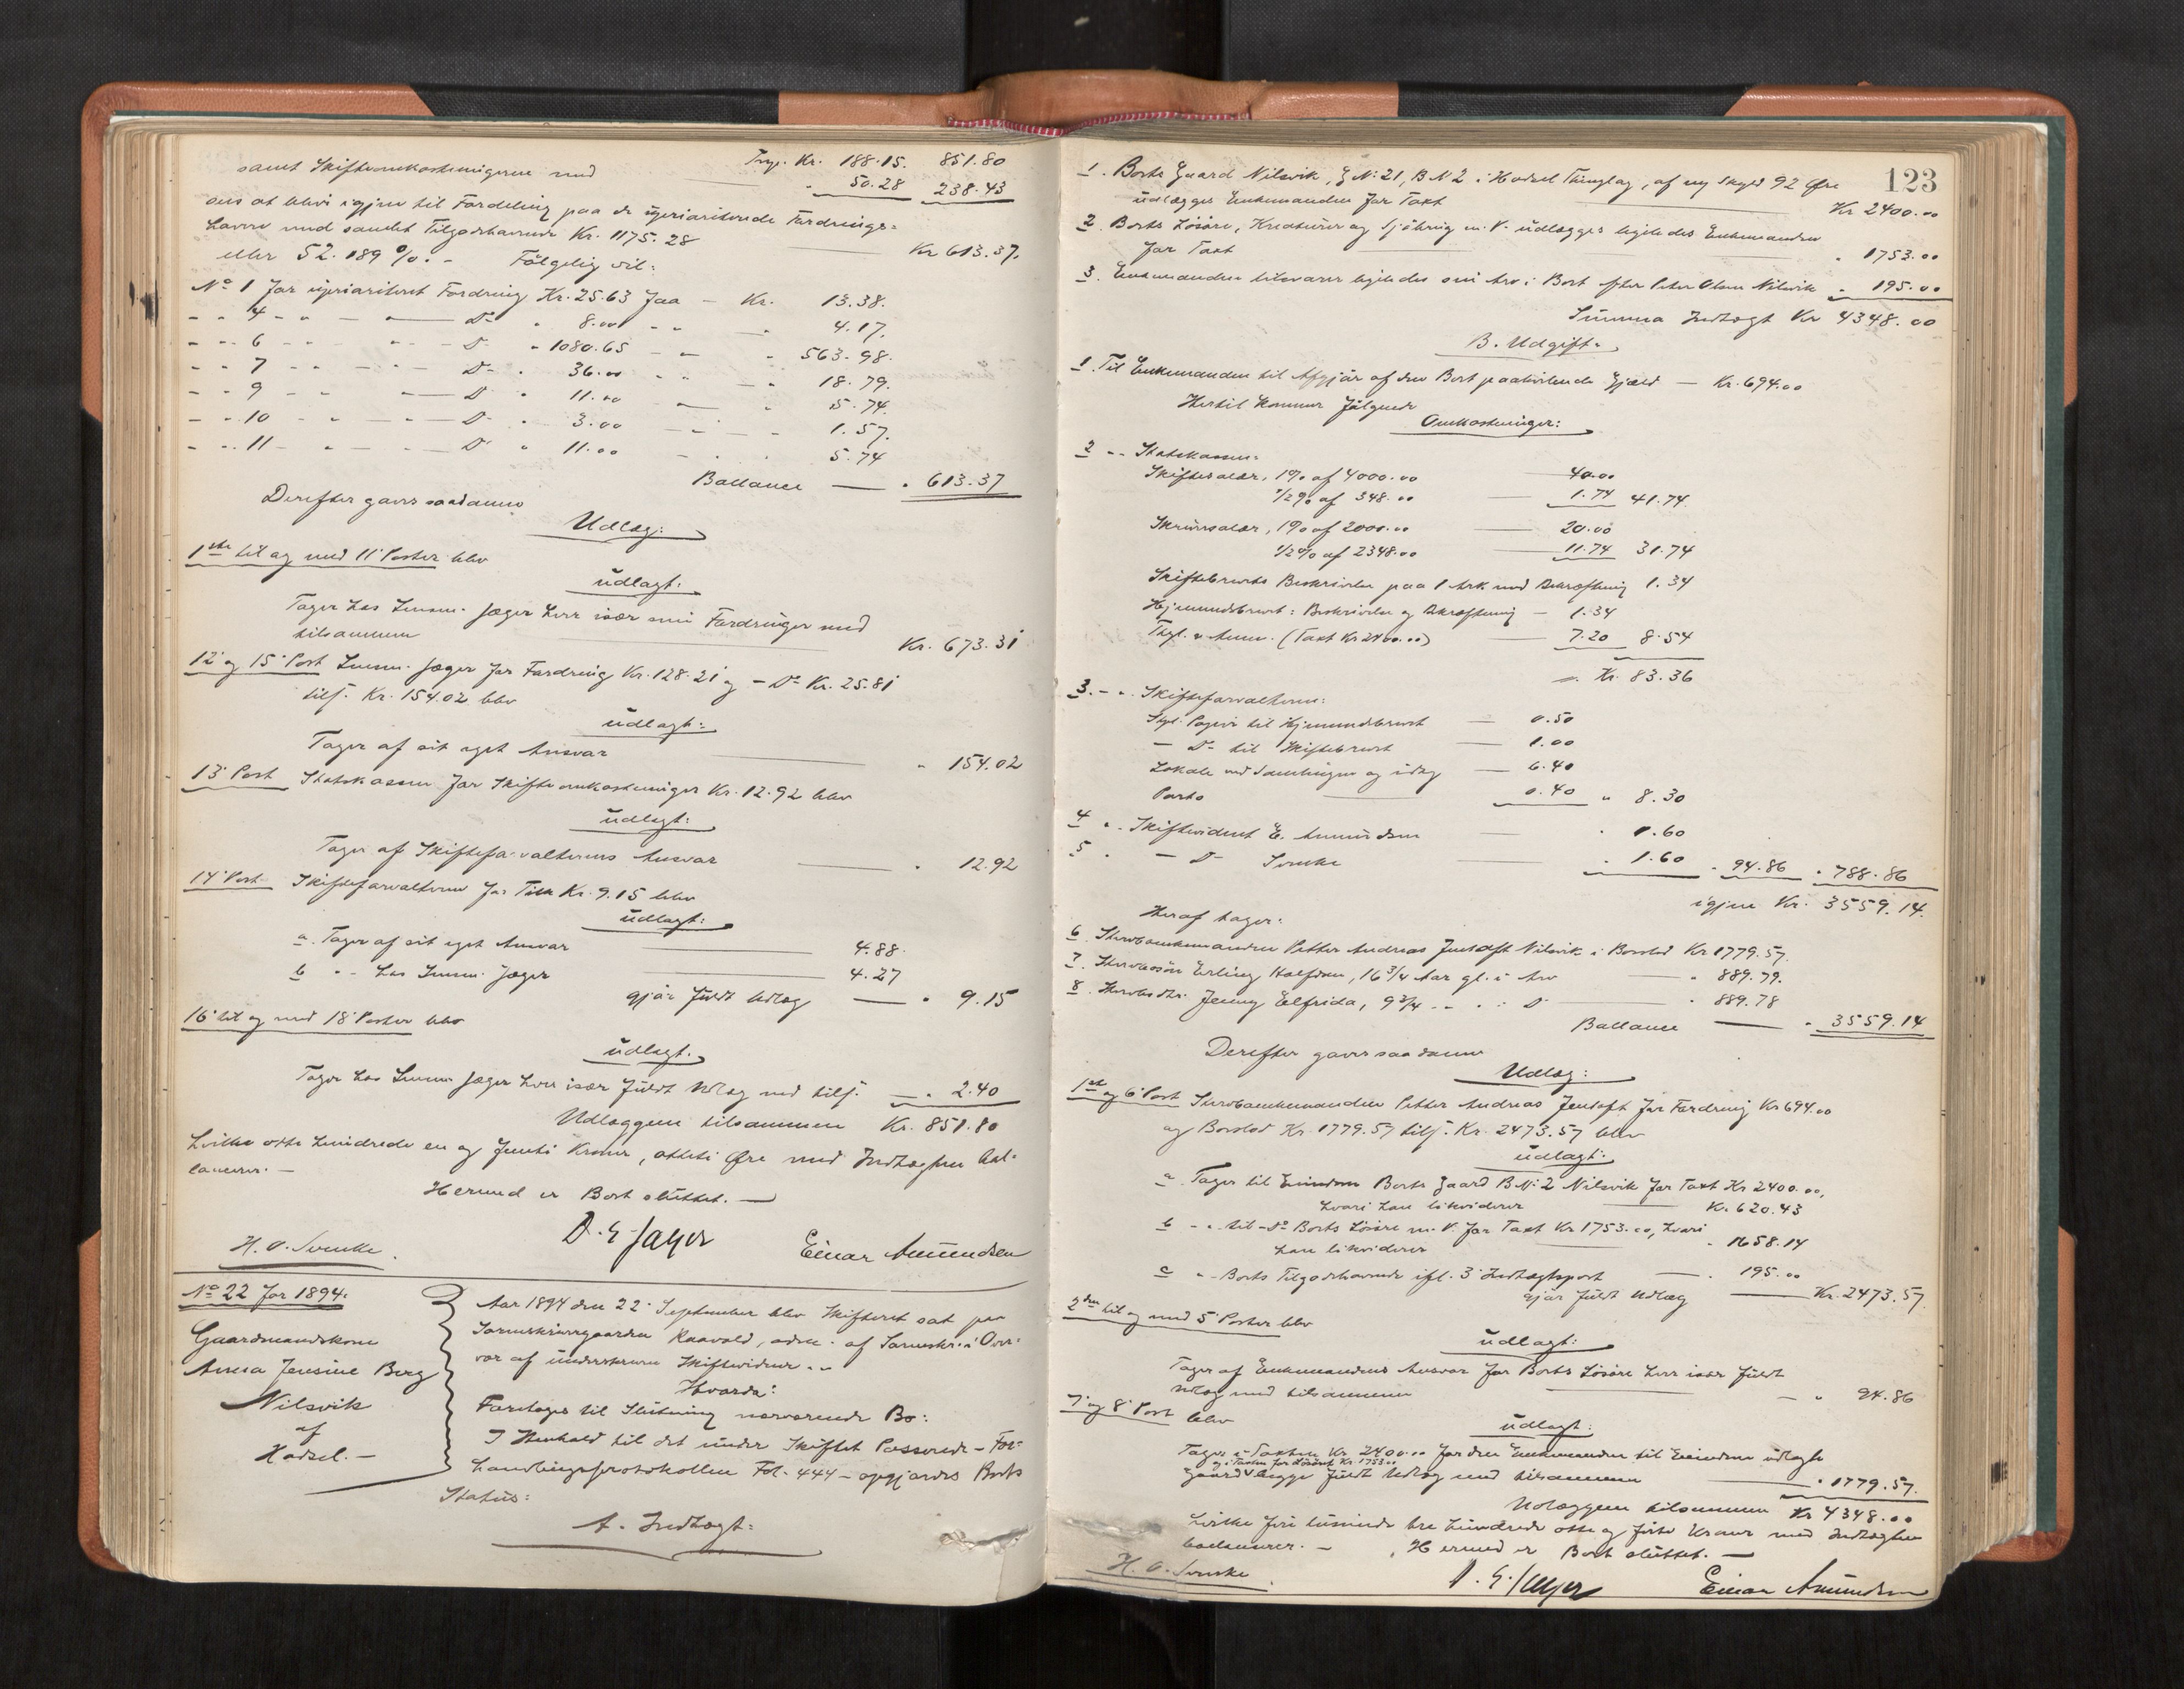 Trsp. Kr. 188.15. 851.80
samt Skifteomkostningerne med " 50.28 238.43
ens at blive igjen til Fordeling paa de upriariterede Fordrings-
havere med samlet Tilgodehavende Kr. 1175.28 Kr 613.37.
eller 52.189 %. - Følgelig vil:
No 1 for upriariteret Fordring Kr. 25.63 faa - Kr. 13.38.
- - 4 - " - Do " 8.00 - " - " 4.17.
- - 6 - - " - Do " 1080.65 - " - " 563.98.
- - 7 - - " - Do " 36.00 " " - " 18.79.
- - 9 - - " - Do " 11.00 - " 5.74.
- - 10 - " - Do " 3.00 - " - 1.57.
- - 11 - " - Do " 11.00 - " " 5.74
Ballance - " 613.37
Derefter gaves saadanne
Udlæg:
1ste til og med 11' Poster blev
udlagt:
Tager hos Lensm. Jæger hver især sine Fordringer med
tilsammen Kr. 673.31
12' og 15' Post Lensm. Jæger for Fordring Kr. 128.21 og - Do Kr. 25.81
tils. Kr. 154.02 blev
udlagt:
Tager af sit eget Ansvar " 154.02
13' Post Statskassen for Skifteomkostninger Kr. 12.92 blev
udlagt:
Tager af Skifteforvalterens Ansvar " 12.92
14' Post Skifteforvalteren for Tilk. Kr. 9.15 blev
udlagt:
a. Tager af sit eget Ansvar 4.88.
b " - hos Lensm. Jæger 4.27
gjør fuldt Udlæg - " 9.15
16' til og med 18' Poster blev
udlagt.
Tager hos Lensm. Jæger hver især fuldt Udlæg med tils. - " 2.40
Udlæggene tilsammen Kr. 851.80
hvilke otte hundrede en og femti Kroner, otteti Øre med Indtægten bal-
lancerer. -
Hermed er Boet sluttet. -
H. O. Svenke. D. E. Jæger Einar Amundsen
No 22 for 1894.
Gaardmandskone
Anna Jensine Berg
Nilsvik
af
Hadsel. -
Aar 1894 den 22' September blev Skifteret sat paa
Sorenskrivergaarden Raavold, adm. af Sorenskr. i Over-
vær af underskrevne Skiftevidner. -
Hvorda:
Foretoges til Slutning nærværende Bo:
I Henhold til det under Skiftet Passerede - For-
handlingsprotokollen Fol. 444 - opgjordes Boets
Status:
A. Indtægt:
123
1. Boets Gaard Nilsvik, G N: 21, B N 2 i Hadsel Thinglag, af ny Skyld 92 Øre
udlægges Enkemanden for Taxt Kr 2400.00
2. Boets Løsøre, Kreaturer og Sjøbrug m. V. udlægges ligeledes Enkemanden
for Taxt " 1753.00
3. Enkemanden tilsvarer ligeledes sin Arv i Boet efter Peter Olsen Nilsvik " 195.00
Summa Indtægt Kr 4348.00
B. Udgift.
1. Til Enkemanden til Afgjør af den Boet paahvilende Gjæld - Kr. 694.00
Hertil kommer følgende
Omkostninger:
2 - " Statskassen:
Skiftesalær, 1% af 4000.00 40.00
1/2% af 348.00 1.74 41.74
Skriversalær, 1% af 2000.00 20.00
1/2% af 2348.00 11.74 31.74
Skiftebrevets Beskrivelse paa 1 Ark med Bekræftning 1.34
Hjemmelsbrevet: Beskrivelse og Bekræftning - 1.34
Thgl. & Ann. (Taxt Kr 2400.00) 7.20 8.54
" Kr. 83.36
3. - " Skifteforvalteren:
Stpl. Papir til Hjemmelsbrevet 0.50
- Do til Skiftebrevet 1.00
Lokale ved Samlingen og idag 6.40
Porto 0.40 " 8.30
4 " Skiftevidnet E. Amundsen " 1.60
5 " - Do Svenke " 1.60 " 94.86 " 788.86
igjen Kr. 3559.14.
Heraf tager:
6. Stervboenkemanden Petter Andreas Jentoft Nilsvik i Boeslod Kr 1779.57.
7. Stervbosøn Erling Halfdan, 16 3/4 Aar gl. i Arv " 889.79.
8. Stervbodtr. Jenny Elfrida, 9 3/4 - " - " Do " 889.78
Ballance - " 3559.14
Derefter gaves saadanne
Udlæg:
1ste og 6' Post Stervboenkemanden Petter Andreas Jentoft for Fordring Kr 694.00
og Boeslod Kr. 1779.57 tils. Kr. 2473.57 blev
udlagt:
a. Tager til Eiendom Boets Gaard B N: 2 Nilsvik for Taxt Kr 2400.00,
hvori han likviderer Kr. 620.43
b - " til - Do Boets Løsøre m. V. for Taxt Kr 1753.00, hvori
han likviderer " 1658.14
c " - Boets Tilgodehavende ifl. 3' Indtægtspost - " 195.00
gjør fuldt Udlæg Kr. 2473.57
2den til og med 5' Poster blev
udlagt:
Tager af Enkemandens Ansvar for Boets Løsøre hver især fuldt
Udlæg med tilsammen " 94.86
7' og 8' Post blev
udlagt:
Tager i Taxten Kr. 2400.00 for den Enkemanden til Eiendom udlagte
og i Taxten for Løsøret Kr. 1753.00
Gaard begge fuldt Udlæg med tilsammen " 1779.57.
Udlæggene tilsammen Kr 4348.00
hvilke fire tusinde tre hundrede otte og firti Kroner med Indtægten
balancerer. - Hermed er Boet sluttet. -
H. O. Svenke. D. E. Jæger Einar Amundsen